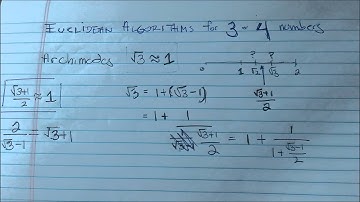 EUCLIDEAN ALGORITHMS for 3 - 4 numbers
Archimedes √3 ≈ 1
? ?
1 √2 √3 2
(√3+1)/2
(√3+1)/2 ≈ 1
√3 = 1+(√3-1)
2/(√3-1) = √3+1
= 1 + 1/((√3+1)/2) = 1 + 1/(1 + (√3-1)/2)